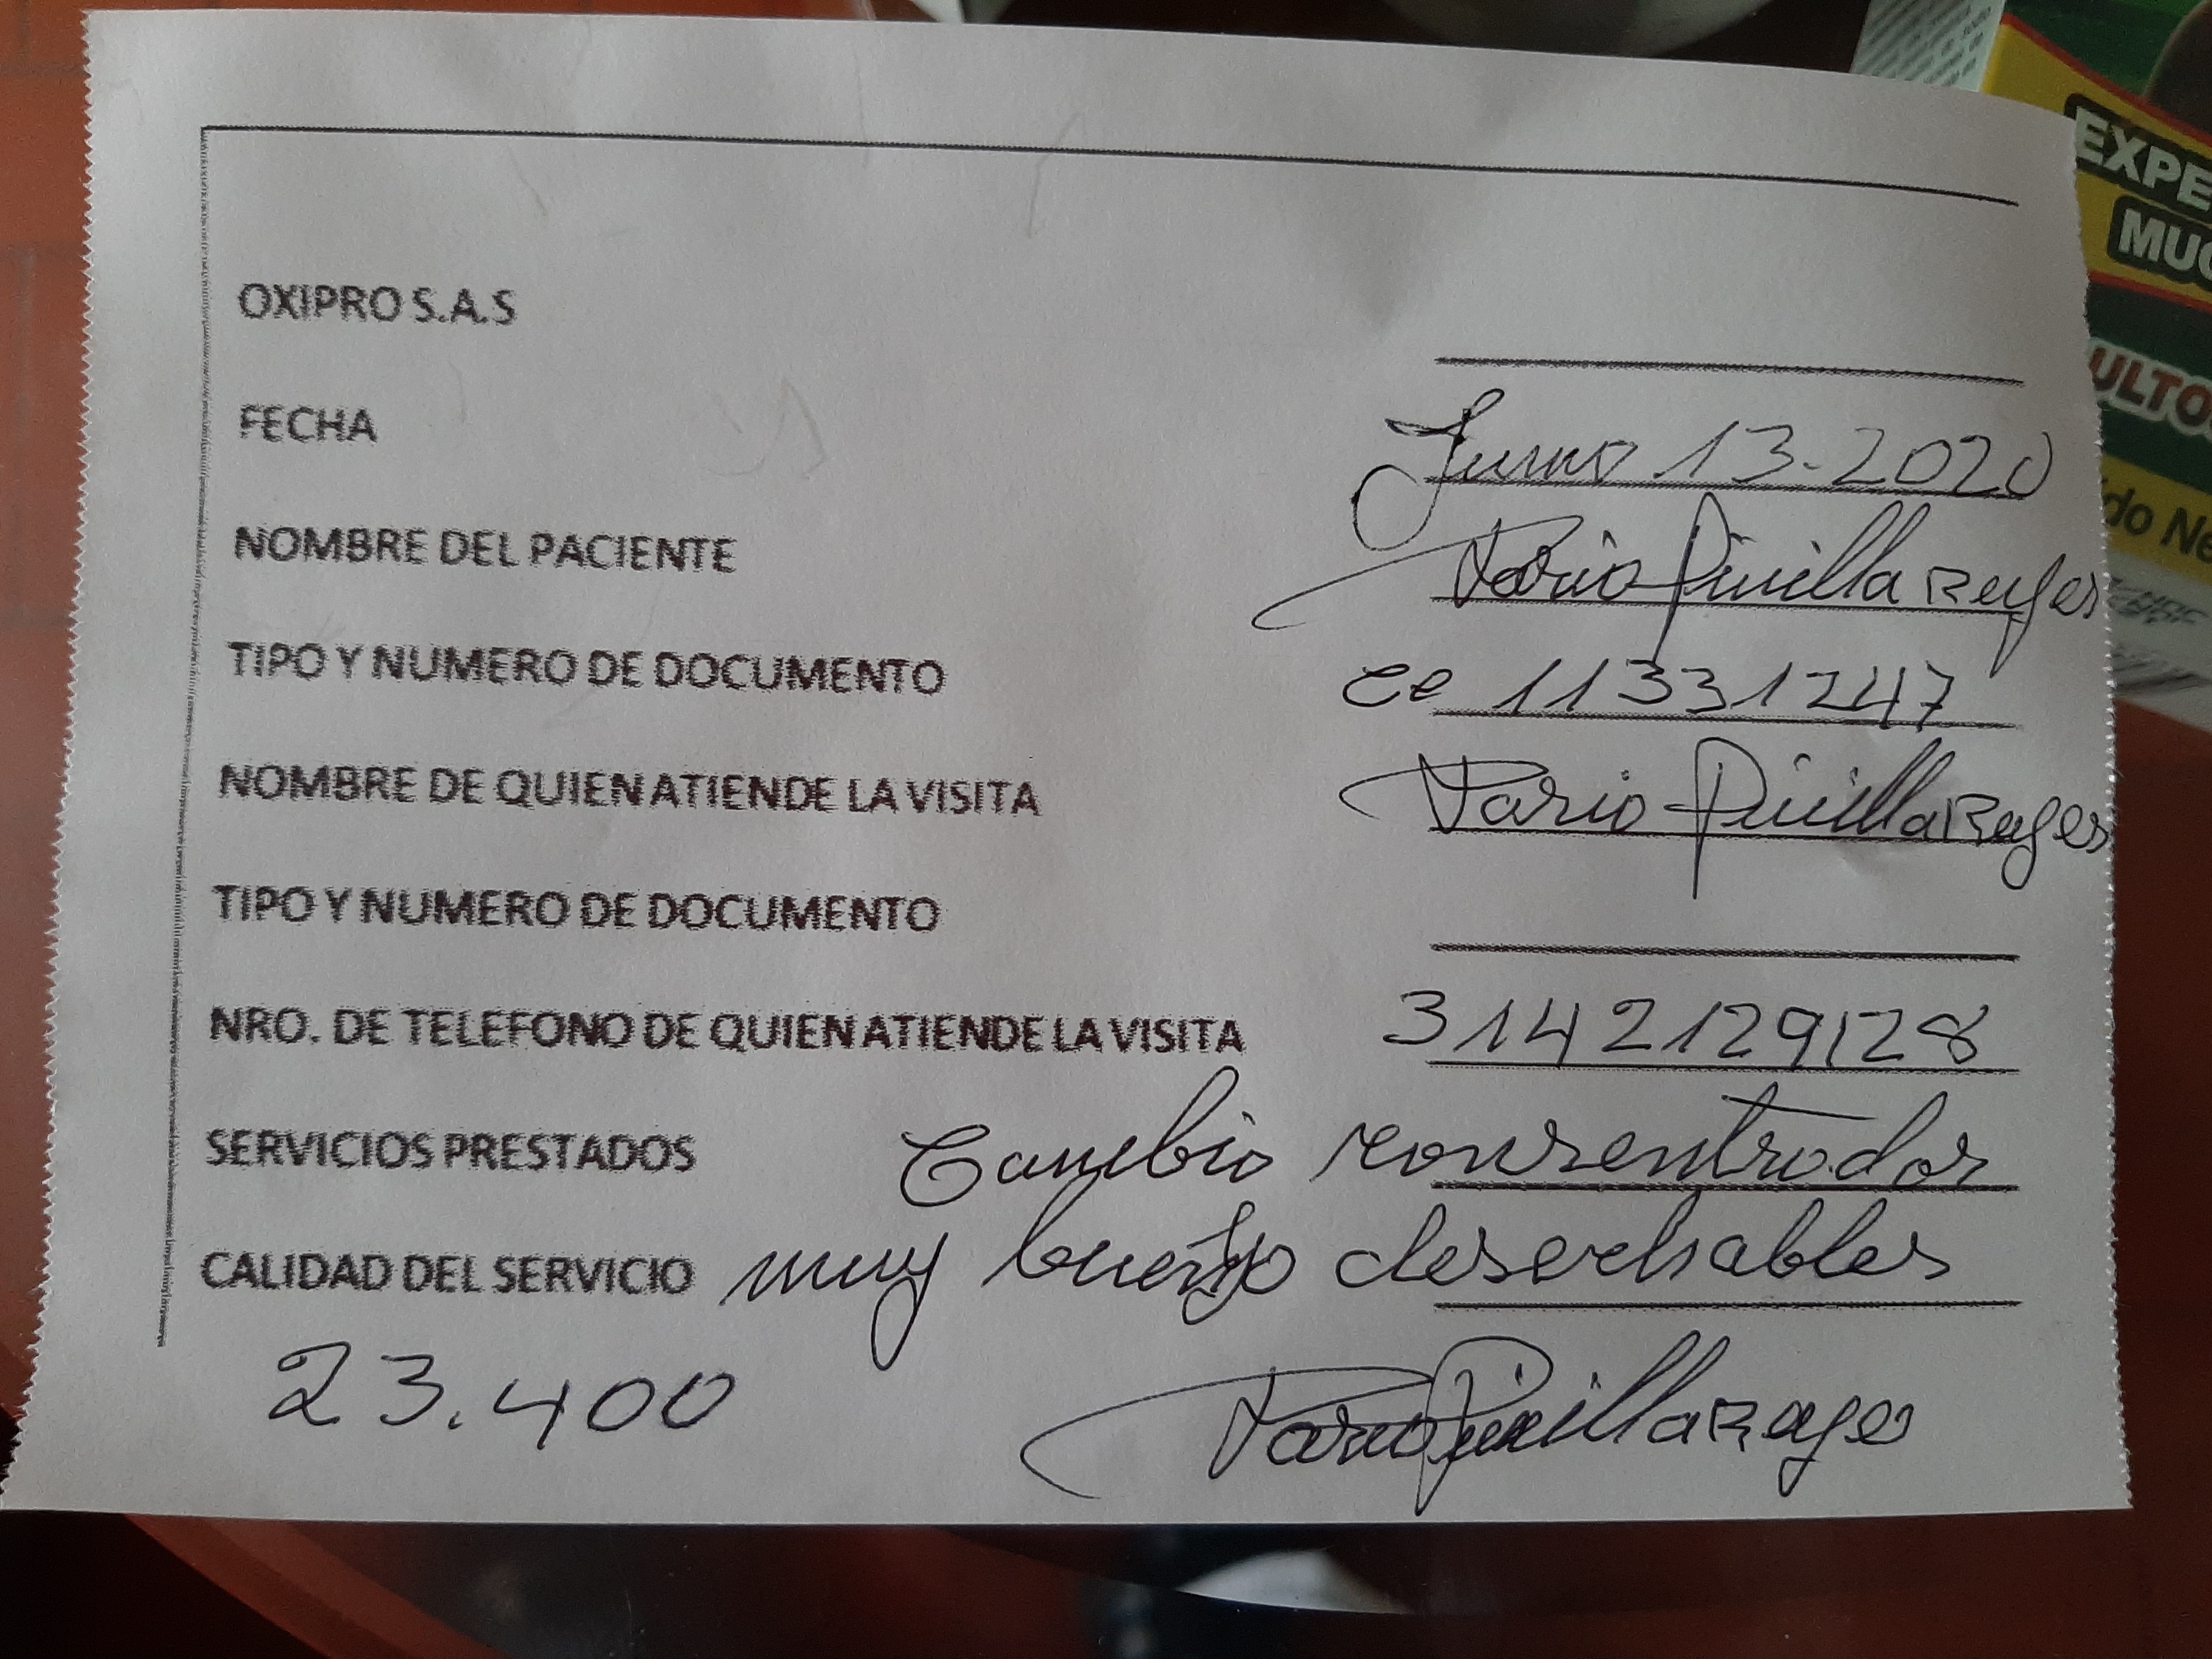 OXIPRO S.A.S
FECHA Junio 13-2020
NOMBRE DEL PACIENTE Dario Pinilla Reyes
TIPO Y NUMERO DE DOCUMENTO cc 11331247
NOMBRE DE QUIEN ATIENDE LA VISITA Dario Pinilla Reyes
TIPO Y NUMERO DE DOCUMENTO
NRO. DE TELEFONO DE QUIEN ATIENDE LA VISITA 3142129128
SERVICIOS PRESTADOS Cambio consentrador
CALIDAD DEL SERVICIO muy bueno y desechables
23.400 Dario Pinilla Reyes
EXPE
MUC
ULTOS
do Ne